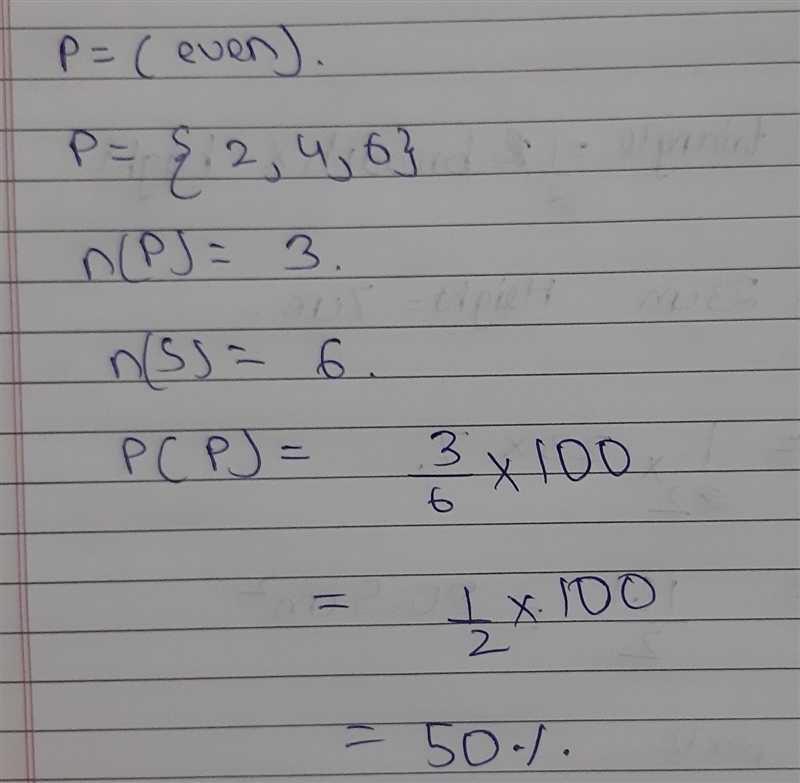 P = (even).
P = {2, 4, 6}
n(P) = 3.
n(S) = 6.
P(P) = 3/6 × 100
= 1/2 × 100
= 50%.